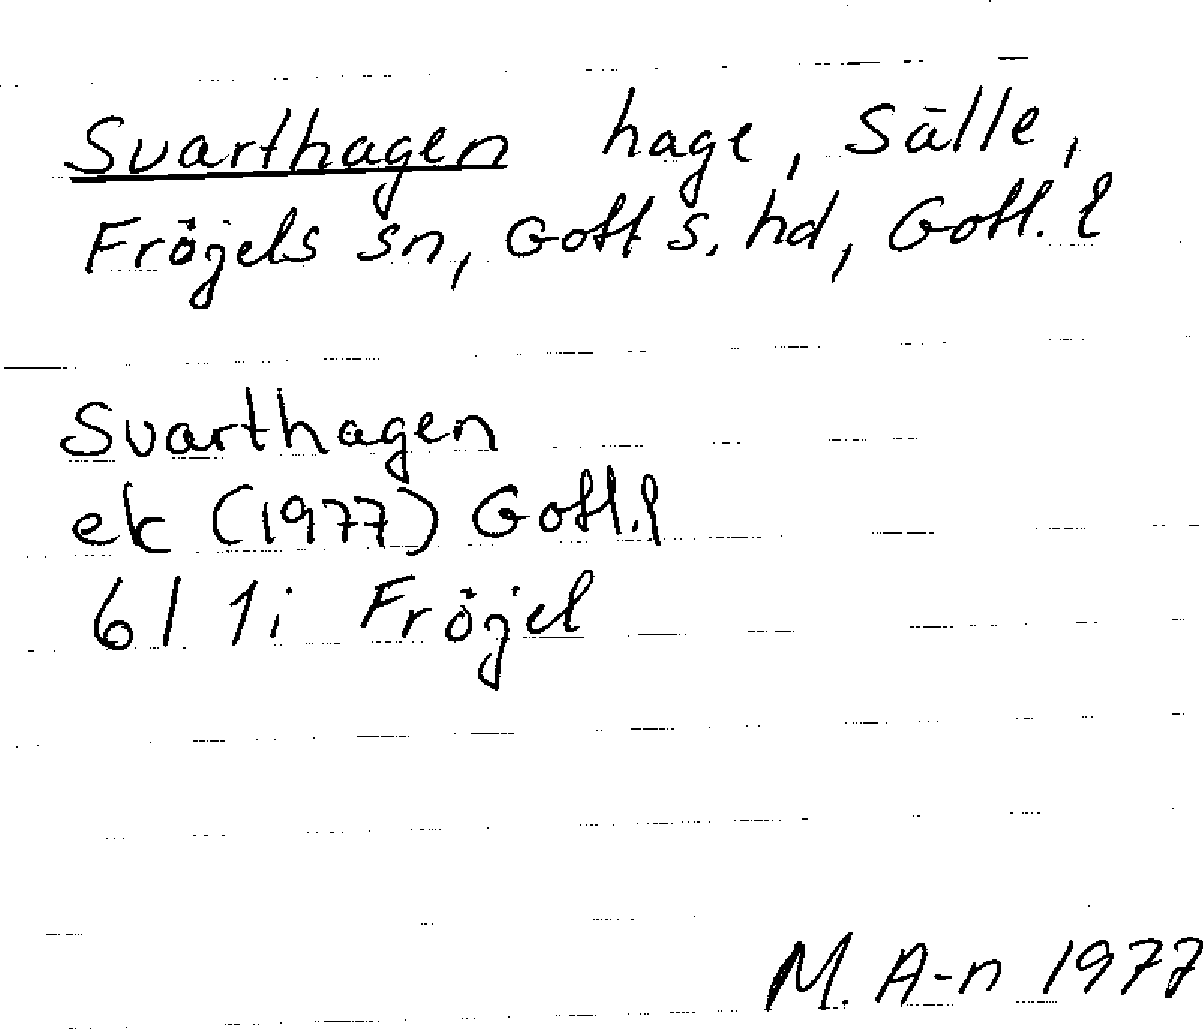 Svarthagen hage, Sälle,
Fröjels sn, Gotl s. hd, Gotl. l
Svarthagen
ek (1977) Gotl. l
6I 1i Fröjel
M. A-n 1977